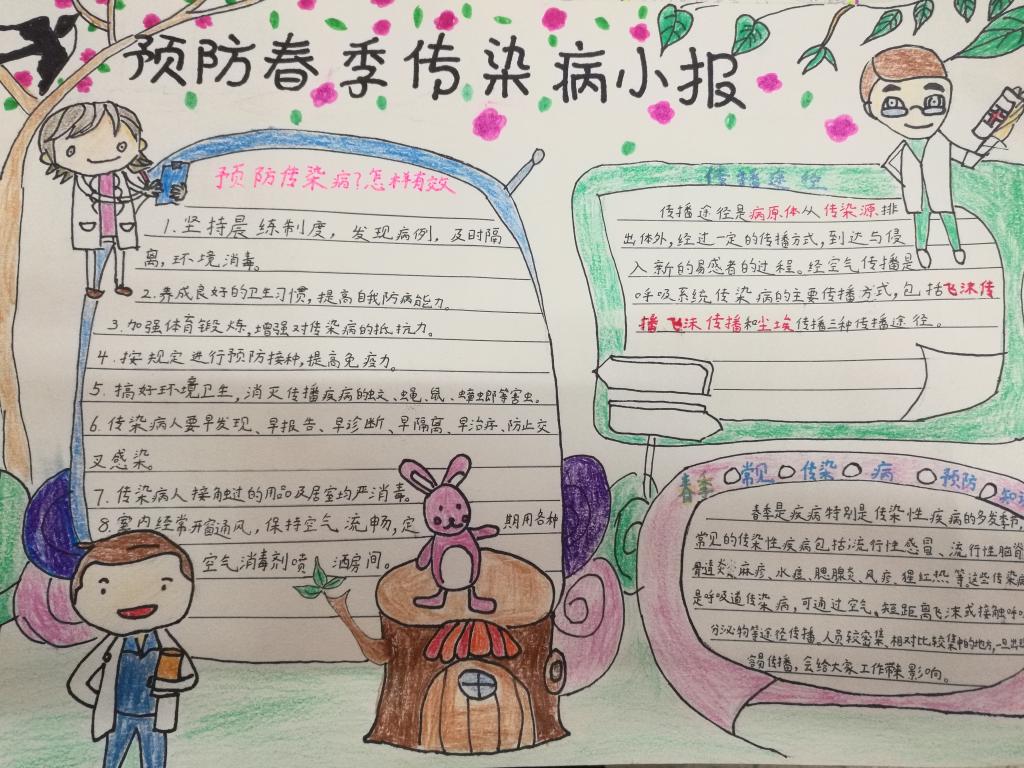 预防春季传染病小报
预防传染病?怎样有效
1.坚持晨练制度,发现病例,及时隔
离,环境消毒。
2.养成良好的卫生习惯,提高自我防病能力。
3.加强体育锻炼,增强对传染病的抵抗力。
4.按规定进行预防接种,提高免疫力。
5.搞好环境卫生,消灭传播疾病的蚊、蝇、鼠、蟑螂等害虫。
6.传染病人要早发现、早报告、早诊断、早隔离、早治疗、防止交
叉感染。
7.传染病人接触过的用品及居室均严消毒。
8.室内经常开窗通风,保持空气流畅,定期用各种
空气消毒剂喷洒房间。
传播途径
传播途径是病原体从传染源排
出体外,经过一定的传播方式,到达与侵
入新的易感者的过程。经空气传播是
呼吸系统传染病的主要传播方式,包括飞沫传
播飞沫传播和尘埃传播三种传播途径。
春季常见传染病预防知
春季是疾病特别是传染性疾病的多发季节,
常见的传染性疾病包括:流行性感冒、流行性脑脊
骨通炎、麻疹、水痘、腮腺炎、风疹、猩红热等这些传染病
是呼吸道传染病,可通过空气、短距离飞沫或接触呼
分泌物等途径传播。人员较密集、相对比较集中的地方,一旦出现
传播,会给大家工作带来影响。